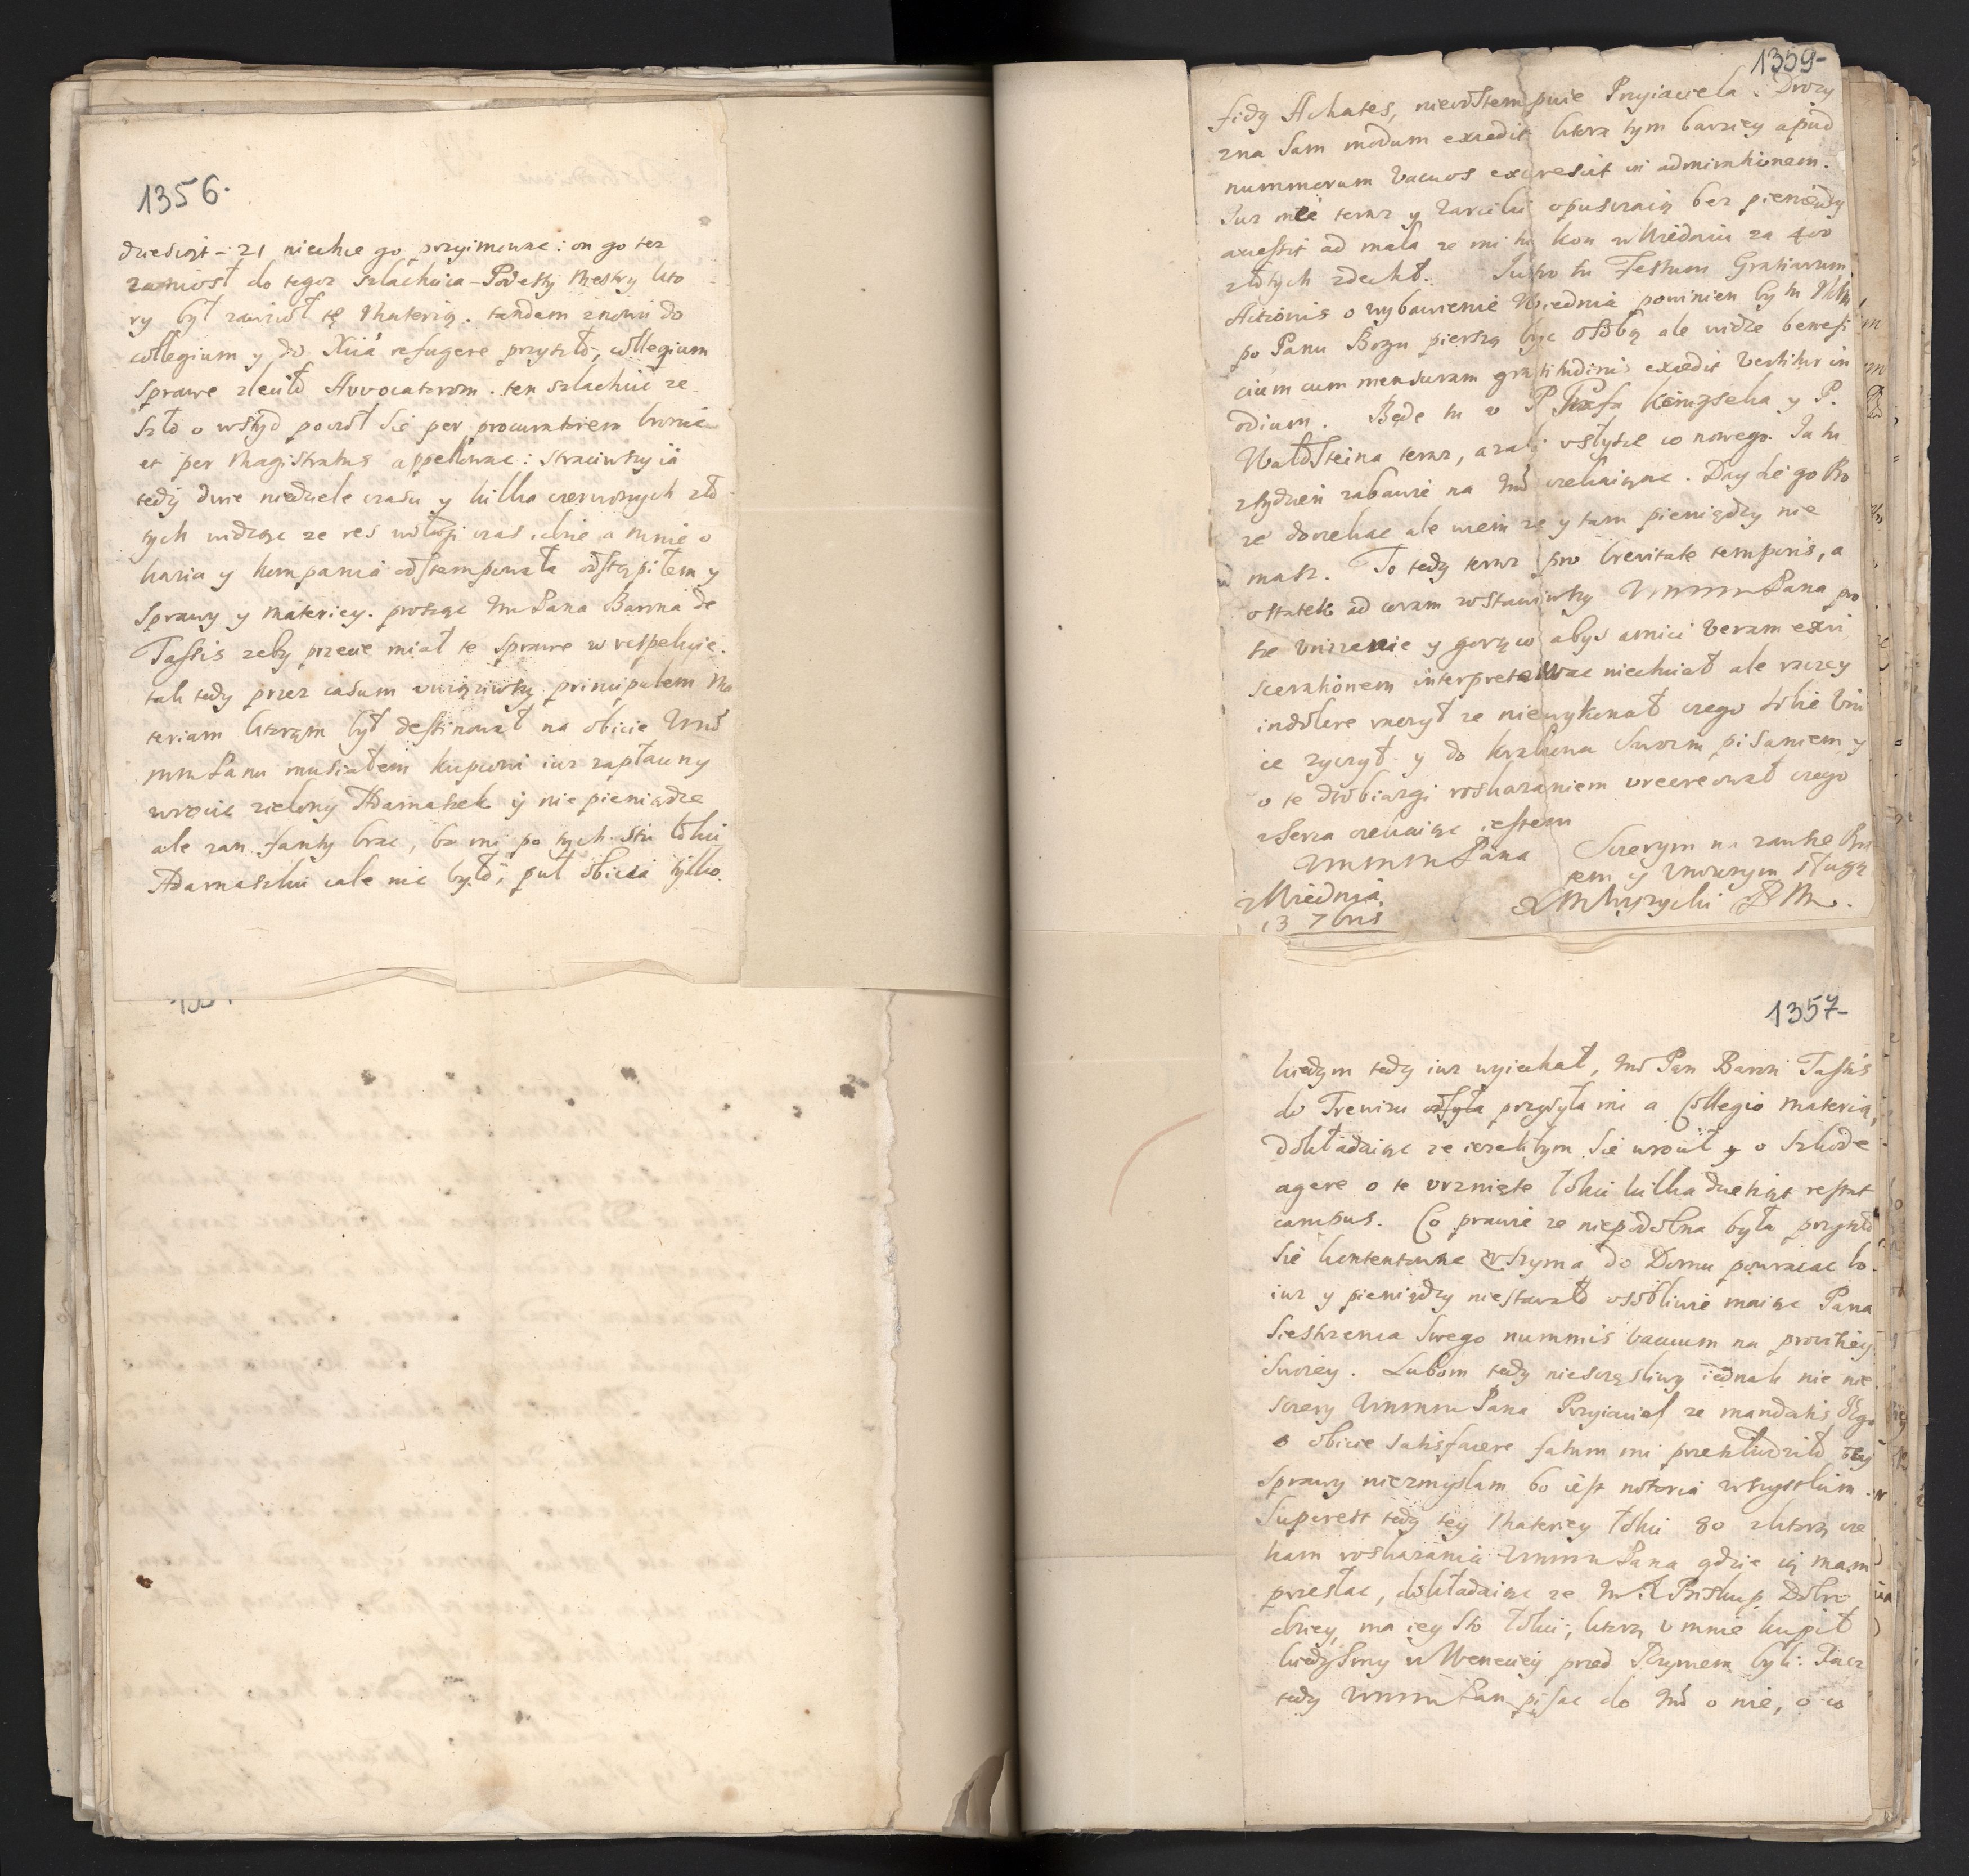 1356.
dziesiąt - 21 niechce go przyimowac: on go tez
zaniosł do tegoz szlachcica - Podesty Mestry kto
ry był zawziół tę Materią. tandem znowu do
collegium y do Xcia refugere przyszło, collegium
sprawe zleciło Avvocatorom. ten szlachcic ze
szło o wstyd poczół sie per procuratorem bronic
et per Magistratus appellowac: straciwszy ia
tedy dwie niedziele czasu y kilka czerwonych zło
tych widząc ze res
y kompania odstempowała odstąpiłem y
sprawy y materiey. prosząc Pana Barona de
Tassis zeby przecie miał te sprawe w respekcie.
tak tedy przez casum principalem Ma
teriam ktorąm był destinował na obicie
Panu musiałem kupcowi iuz zapłacony
wrocic zielony Adamaszek y nie pieniądze
ale zan fanty brac, bo mi po tych stu łokci
Adamaszku cale nic było, puł obicia tylko.
1359-
fidy Achates, nieodstempnie Przyiaciela. Drozy
zna sam modum excedit ktora tym barziey apud
nummorum vacuos excrescit in admirationem.
Iuz mie teraz y opuszczaią bez pieniędzy
accessit ad mala ze mi tu kon w Wiedniu za 400
złotych zdechł. Iutro tu Festum Gratiarum
Actionis o wybawienie Wiednia powinien by tu
po Panu Bogu pierszą byc osobą ale widze benefi
cium cum mensuram gratitudinis excedit vertitur in
odium. Będe tu u P. y P.
Waldsteina teraz, azali usłysze co nowego. Ia tu
ztydzień zabawie na czekaiąc. Day ze go Bo
ze doczekac ale wiem ze y tam pieniędzy nie
masz. To tedy teraz pro brevitate temporis, a
ostatek ad coram zostawiwszy Pana pro
sze unizenie y gorąco abys amici veram exe
scerationem interpretowac niechciał ale rzeczy
indolere raczył ze niewykonał czego sobie
ie zyczył y do Krakowa swoim pisaniem y
o te drobiazgi roskazaniem urecreował czego
zserca czekaiąc iestem
Pana
Szczerym na zawsze Bra
tem y unizonym sługą
z Wiednia
13 7bris
1357-
kiedym tedy iuz wyiechał, Pan Baron Tassis
do Trewizu odsyła przysyła mi a Collegio materią,
dokładaiąc ze iezelibym sie wrocił y o szkode
agere o te urznięte łokci kilkadziesiąt restat
campus. Co prawie ze niepodobna była przyszło
sie kontentowac y do Domu powracac bo
iuz y pieniędzy niestawało osobliwie maiąc Pana
Siestrzenca swego nummis vacuum na prowizey
swoiey. Lubom tedy nieszczęśliwy iednak nie nie
szczery Pana Przyiaciel ze mandatis Iego
o obicie satisfacere fatum mi przeszkodziło tey
sprawy niezmyslam bo iest notoria wszystkim.
Superest tedy tey Materiey łokci 80 zktorą cze
kam roskazania Pana gdzie ią mam
przesłac, dokładaiąc ze Biskup Dobro
dziey, ma iey sto łokci, ktorą u mnie kupił
kiedysmy w Weneciey przed Rzymem byli. Racz
tedy Pan pisac do o nie, o co